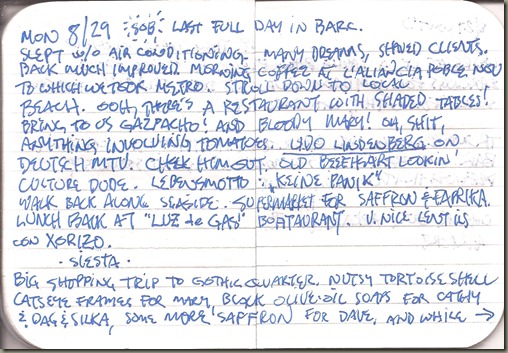 MON 8/29 *SOB* LAST FULL DAY IN BARC.
SLEPT W/O AIR CONDITIONING. MANY DREAMS, SERVED CLIENTS.
BACK MUCH IMPROVED. MORNING COFFEE AT L'ALIANCIA POBLE NOU
TO WHICH WE TOOK METRO. STROLL DOWN TO LOCAL
BEACH. OOH, THERE'S A RESTAURANT WITH SHADED TABLES!
BRING TO US GAZPACHO! AND BLOODY MARY! OH, SHIT,
ANYTHING INVOLVING TOMATOES. UDO LINDENBERG ON
DEUTSCH MTV. CHEK HIM OUT. OLD BEEFHEART LOOKIN'
CULTURE DUDE. LEBENSMOTTO: "KEINE PANIK"
WALK BACK ALONG SEASIDE. SUPERMARKET FOR SAFFRON & PAPRIKA.
LUNCH BACK AT "LUZ de GAS" BOATAURANT. V. NICE LENTILS
CON XORIZO.
- SIESTA -
BIG SHOPPING TRIP TO GOTHIC QUARTER. NUTSY TORTOISE SHELL
CATSEYE FRAMES FOR MARY, BLACK OLIVE-OIL SOAPS FOR CATHY
& DAG & SILKA, SOME MORE SAFFRON FOR DAVE, AND WHILE →